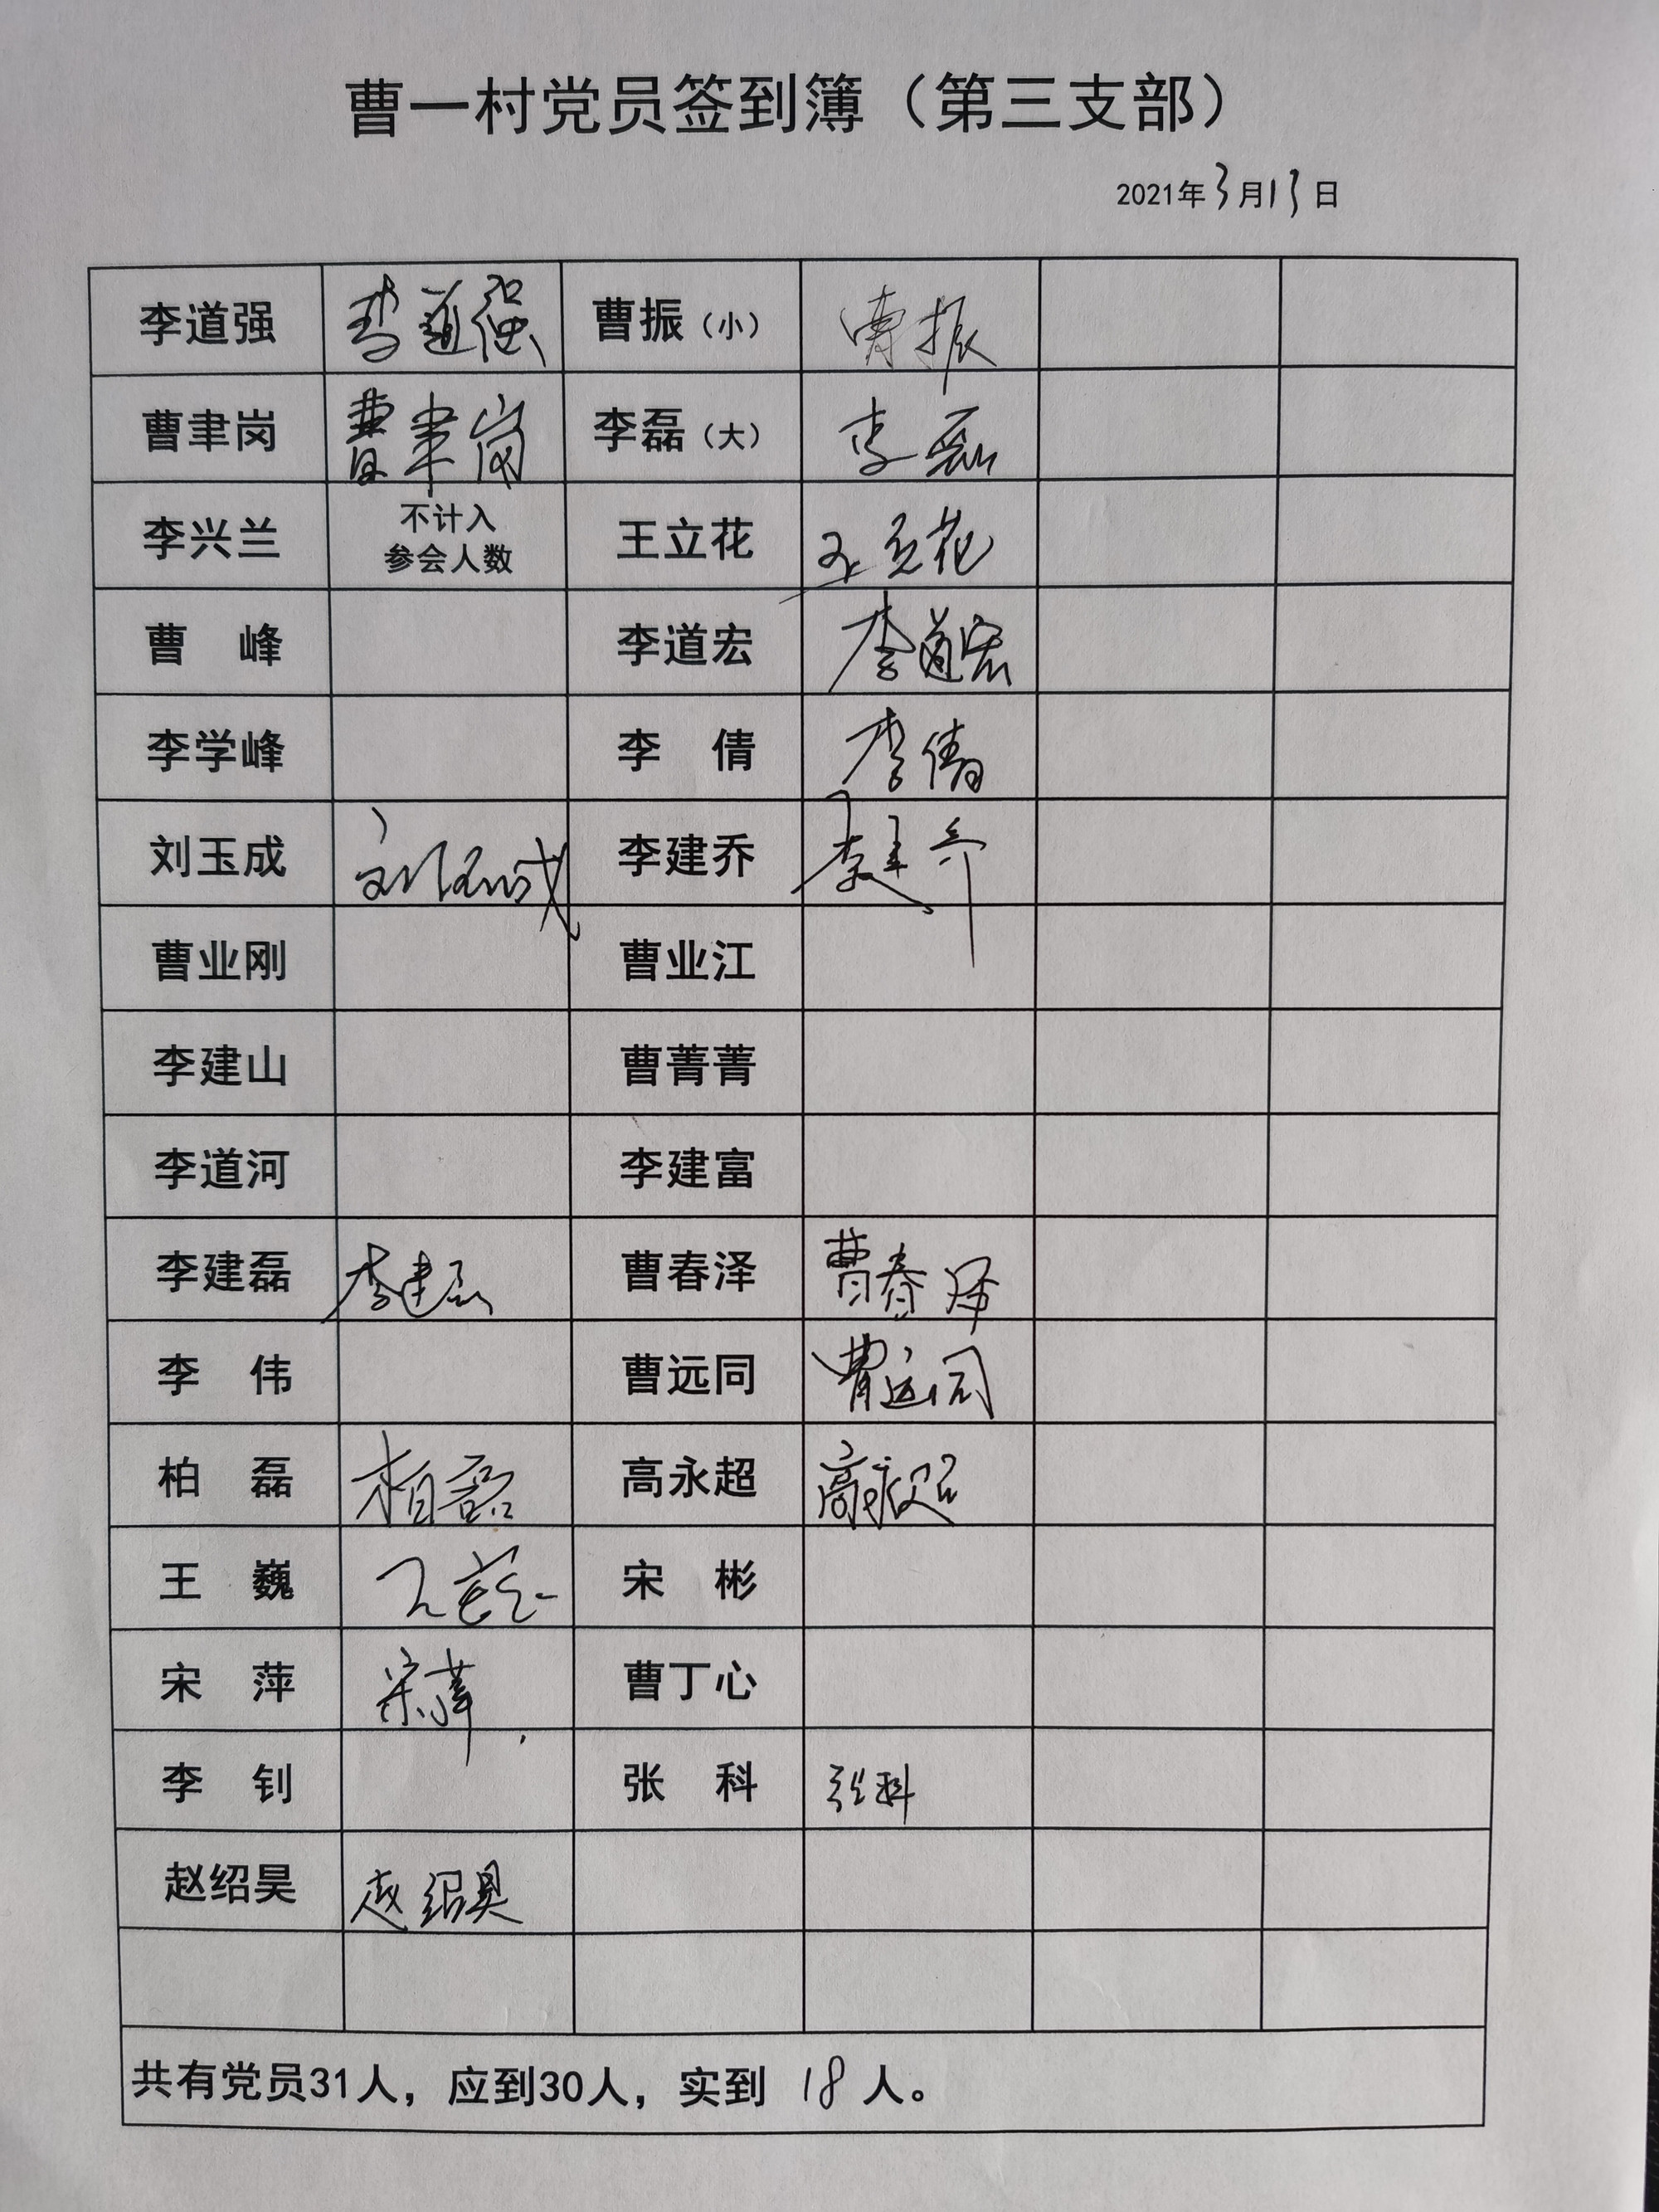 曹一村党员签到簿（第三支部）
2021年3月13日
李道强 李道强 曹振（小） 曹振
曹聿岗 曹聿岗 李磊（大） 李磊
李兴兰 不计入 王立花 王立花
参会人数
曹 峰 李道宏 李道宏
李学峰 李 倩 李倩
刘玉成 刘玉成 李建乔 李建乔
曹业刚 曹业江
李建山 曹菁菁
李道河 李建富
李建磊 李建磊 曹春泽 曹春泽
李 伟 曹远同 曹远同
柏 磊 柏磊 高永超 高永超
王 巍 王巍 宋 彬
宋 萍 宋萍 曹丁心
李 钊 张 科 张科
赵绍昊 赵绍昊
共有党员31人，应到30人，实到 18 人。